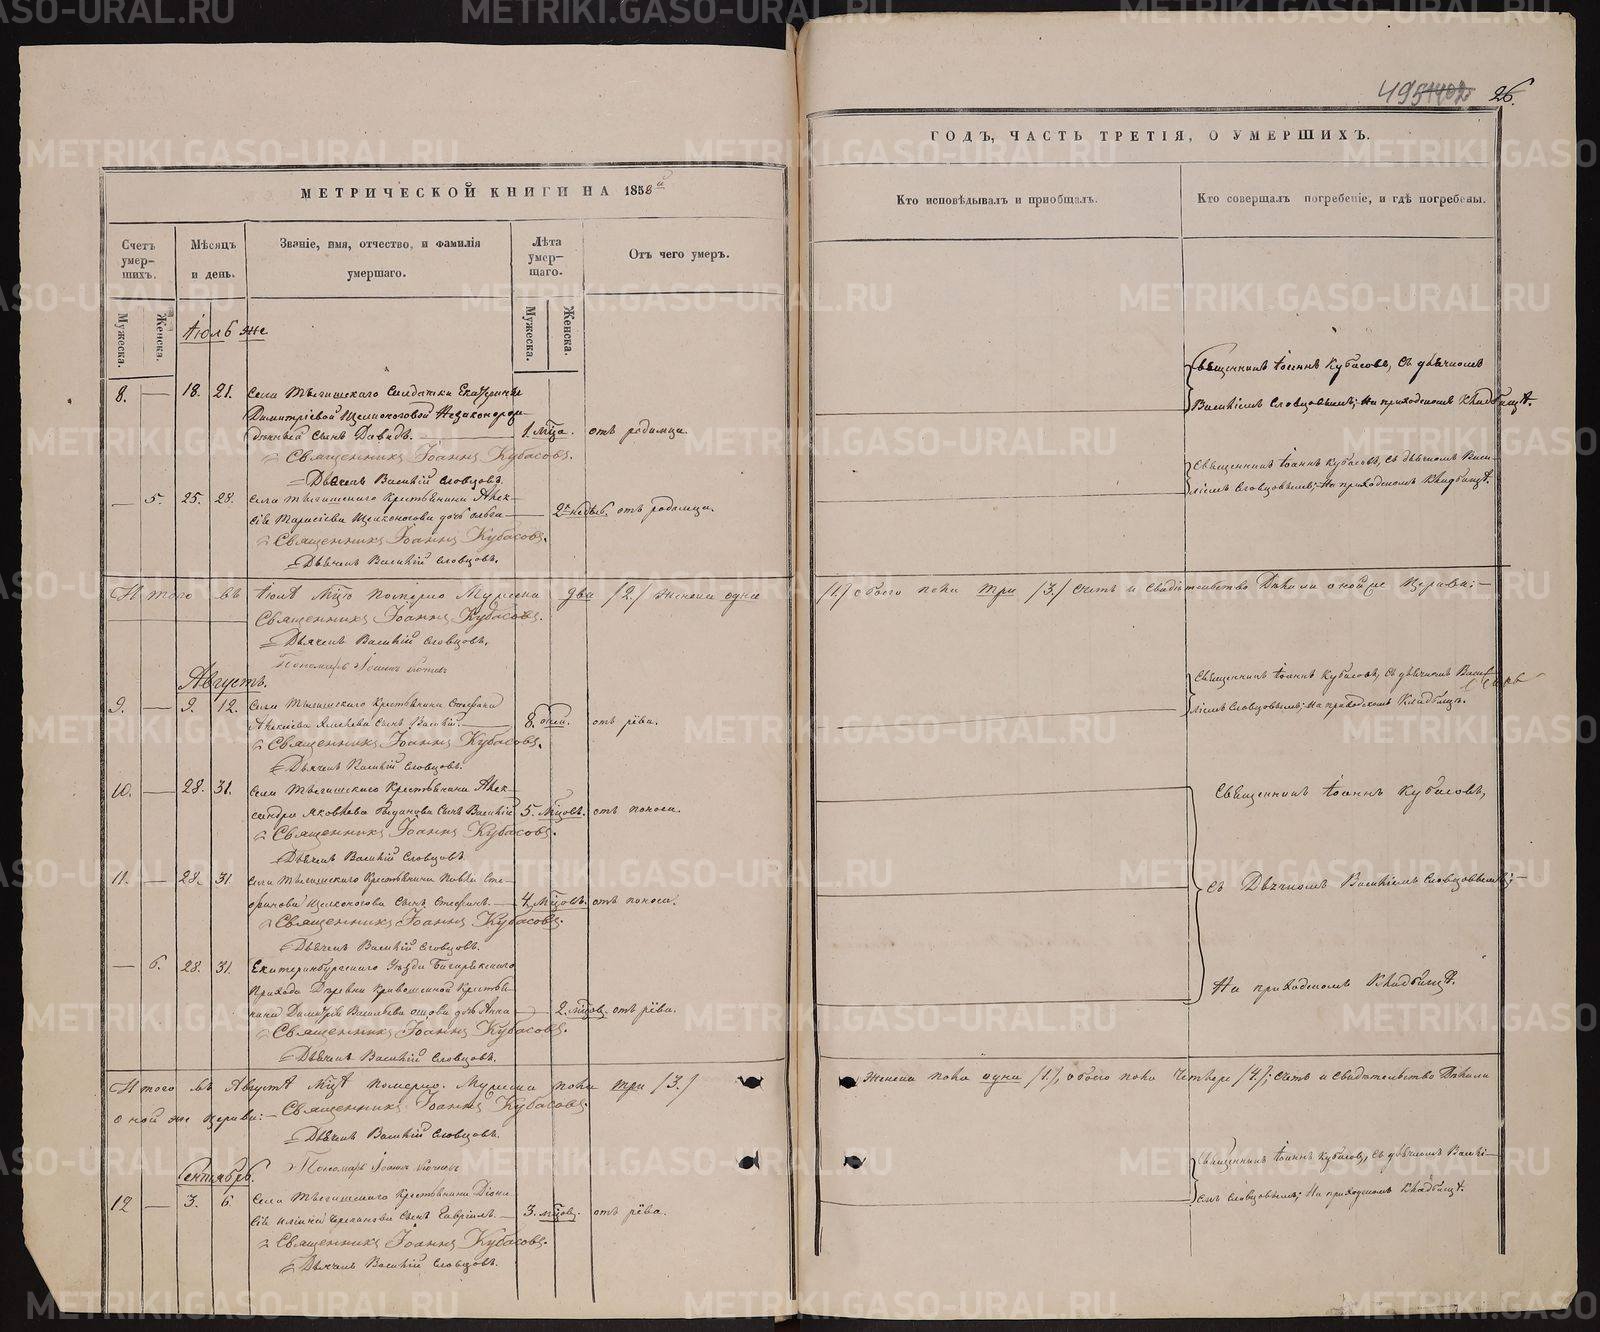 495 1402 26.
МЕТРИЧЕСКОЙ КНИГИ НА 1858й
ГОДЪ, ЧАСТЬ ТРЕТІЯ, О УМЕРШИХЪ.
Счетъ умер-шихъ.
Мѣсяцъ и день.
Званіе, имя, отчество, и фамилія умершаго.
Лѣта умер-шаго.
Отъ чего умеръ.
Кто исповѣдывалъ и пріобщалъ.
Кто совершалъ погребеніе, и гдѣ погребены.
Мужеска.
Женска.
Мужеска.
Женска.
Іюль же
8. — 18. 21. Села Тыгишскаго Солдатки Екатерины
Димитріевой Щелконоговой Незаконорож-
денный сынъ Давидъ. — 1. мца. отъ родимца.
Священникъ Іоаннъ Кубасовъ, съ дьячкомъ
Василіемъ Словцовымъ; На приходскомъ Кладбищѣ.
Священникъ Іоаннъ Кубасовъ.
Дьячекъ Василій Словцовъ.
— 5. 25. 28. Села Тыгишскаго Крестьянина Алек-
сія Тарасіева Щелконогова дочь Ольга — 2х недѣль. отъ родимца.
Священникъ Іоаннъ Кубасовъ, съ дьячкомъ Васи-
ліемъ Словцовымъ; На приходскомъ Кладбищѣ.
Священникъ Іоаннъ Кубасовъ.
Дьячекъ Василій Словцовъ.
Итого въ Іюлѣ Мцѣ померло Мужеска два /2./ Женска одна /1./ обоего пола три /3./
Священникъ Іоаннъ Кубасовъ.
Дьячекъ Василій Словцовъ.
Пономарь Іоаннъ
Августъ.
9. — 9. 12. Села Тыгишскаго Крестьянина Стефана
Алексіева сынъ Василій. — 8. дней. отъ рёва.
Священникъ Іоаннъ Кубасовъ, съ дьячкомъ Васи-
ліемъ Словцовымъ; На приходскомъ Кладбищѣ.
Священникъ Іоаннъ Кубасовъ.
Дьячекъ Василій Словцовъ.
10. — 28. 31. Села Тыгишскаго Крестьянина Алек-
сандра Яковлева сынъ Василій 5. мцовъ. отъ поноса.
Священникъ Іоаннъ Кубасовъ,
Священникъ Іоаннъ Кубасовъ.
Дьячекъ Василій Словцовъ.
11. — 28. 31. Села Тыгишскаго Крестьянина Павла Сте-
фанова Щелконогова сынъ Стефанъ. — 4. мцовъ. отъ поноса.
съ Дьячкомъ Василіемъ Словцовымъ; —
Священникъ Іоаннъ Кубасовъ.
Дьячекъ Василій Словцовъ.
— 6. 28. 31. Екатеринбургскаго Уѣзда Багарякскаго
Прихода Деревни Кривошеиной Крестья-
нина Димитрія Васильева дочь Анна — 2. мцовъ. отъ рёва.
На приходскомъ Кладбищѣ.
Священникъ Іоаннъ Кубасовъ.
Дьячекъ Василій Словцовъ.
Итого въ Августѣ Мцѣ померло. Мужеска пола три /3./ Женска пола одна /1./, обоего пола четверо /4./;
Священникъ Іоаннъ Кубасовъ.
Дьячекъ Василій Словцовъ.
Пономарь Іоаннъ
Сентябрь.
12 — 3. 6. Села Тыгишскаго Крестьянина Діони-
сія сынъ Гавріилъ. — 3. мцовъ. отъ рёва.
Священникъ Іоаннъ Кубасовъ, съ дьячкомъ Василі-
емъ Словцовымъ; На приходскомъ Кладбищѣ.
Священникъ Іоаннъ Кубасовъ.
Дьячекъ Василій Словцовъ.
METRIKI.GASO-URAL.RU